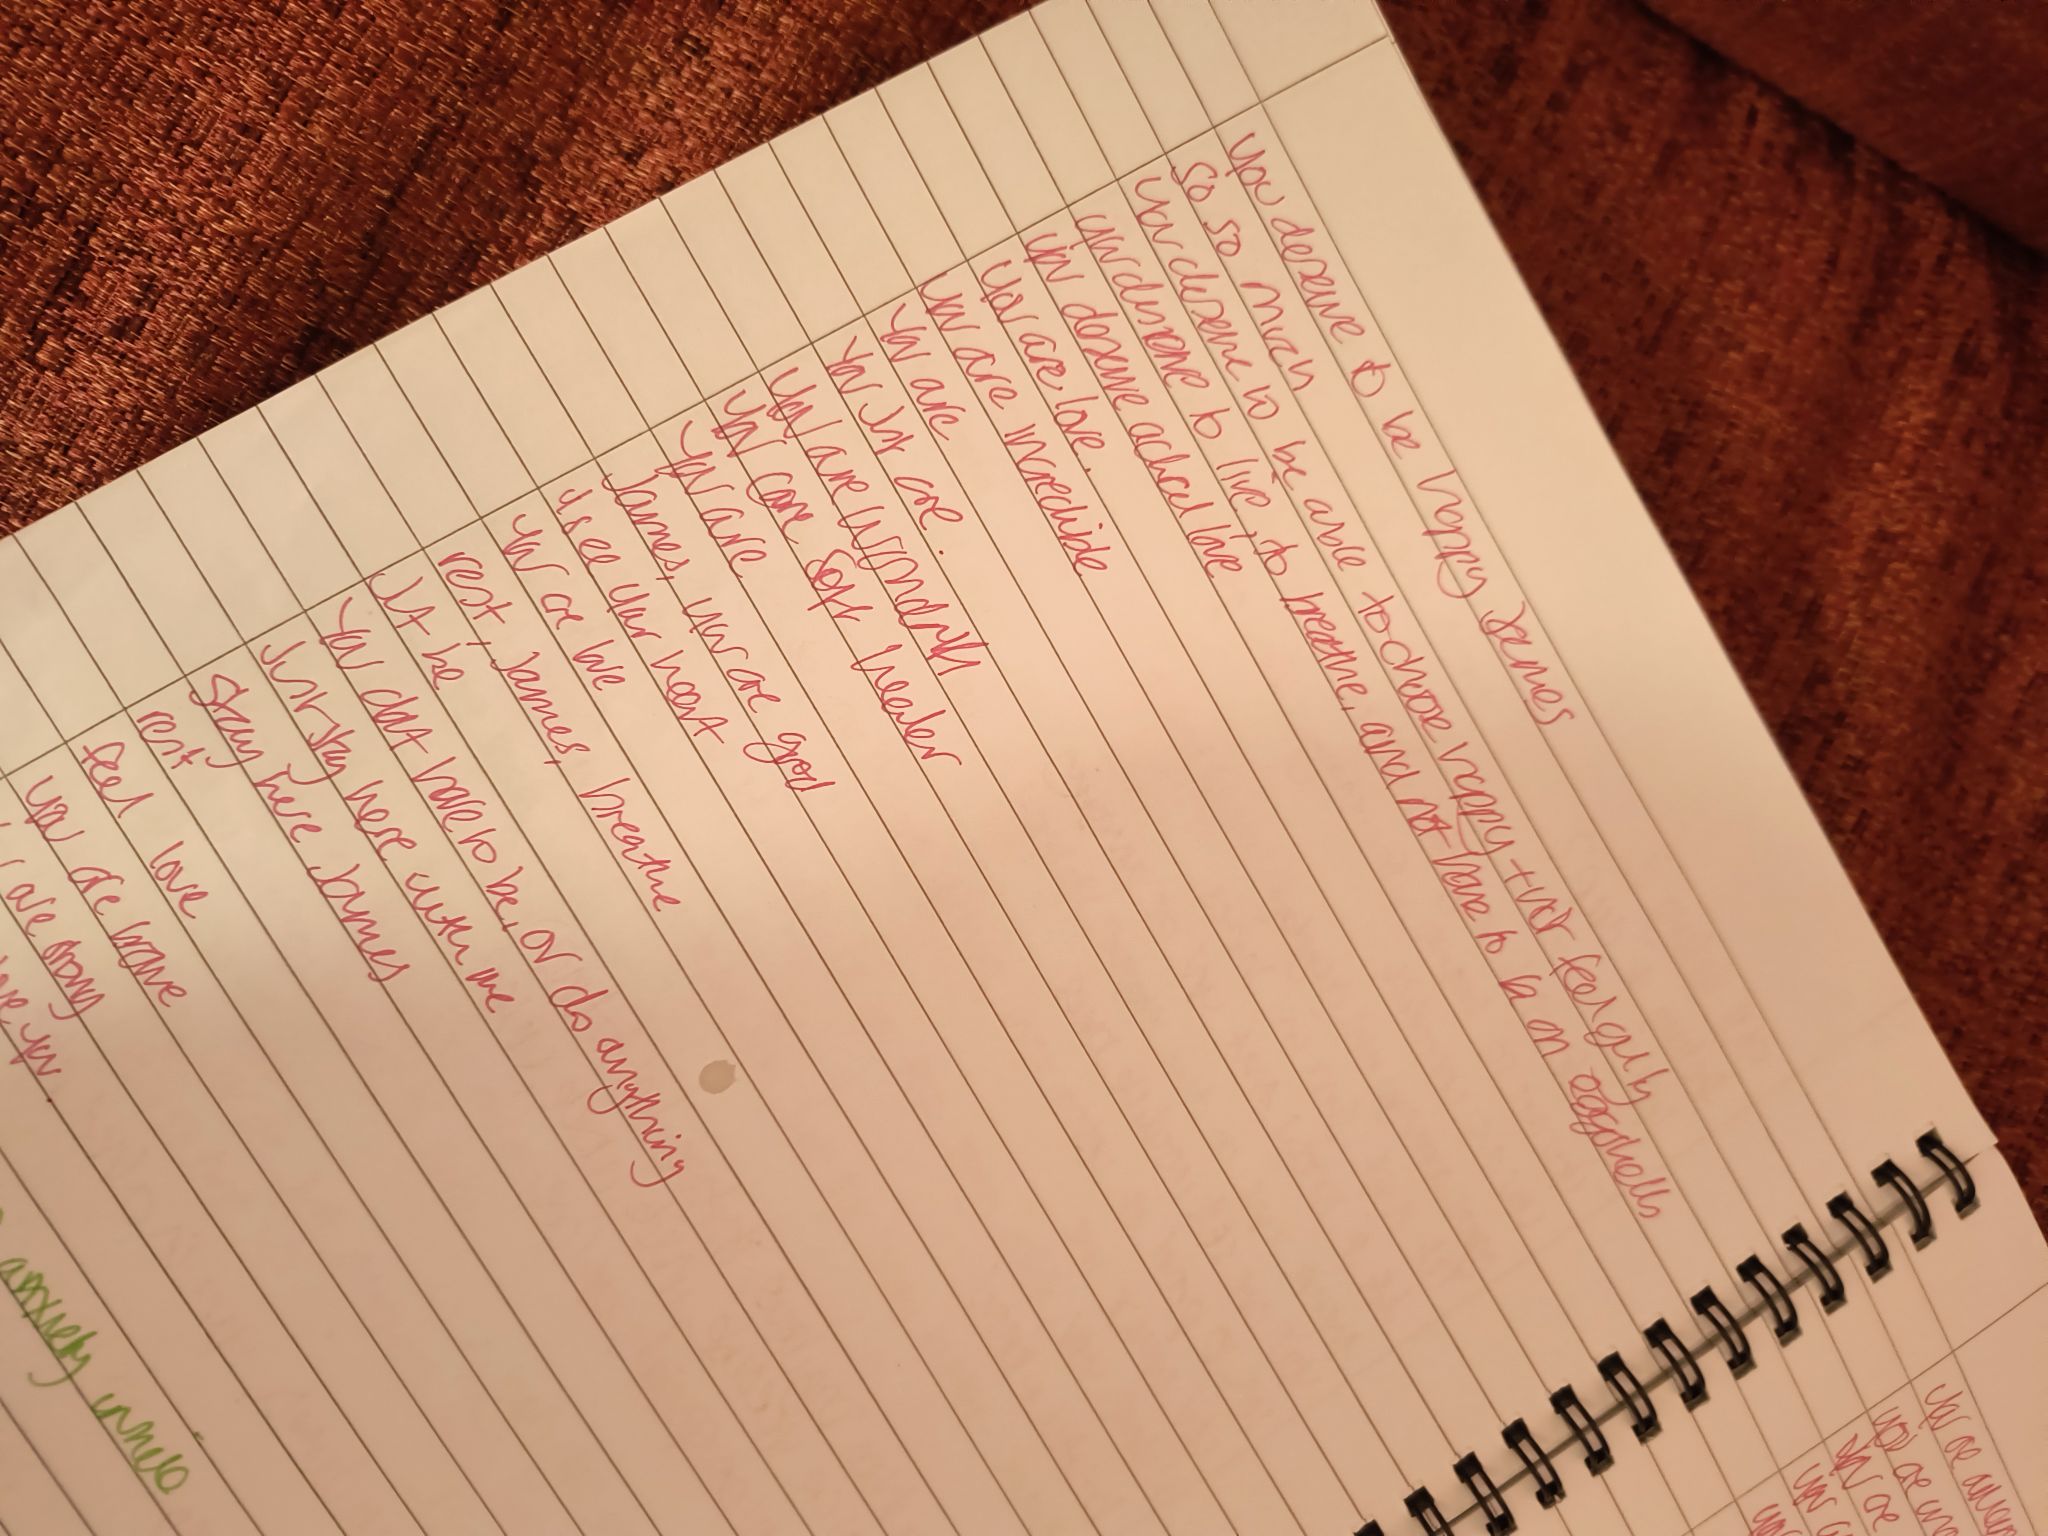 you deserve to be happy James
so so much
you deserve to be able to choose happy + not feel guilty
you deserve to live, to breathe, and not have to be on eggshells
you deserve actual love
you are love.
you are incredible
you are
you just are.
you are wonderful
you are soft, tender
you are
James, you are good
I see your heart
you are love
rest, James, breathe
Just be
you dont have to be, or do anything
Just stay here with me
stay here James
rest
feel love
you are brave
you are strong
love you.
anxiety
you are
you are
you are
you
you